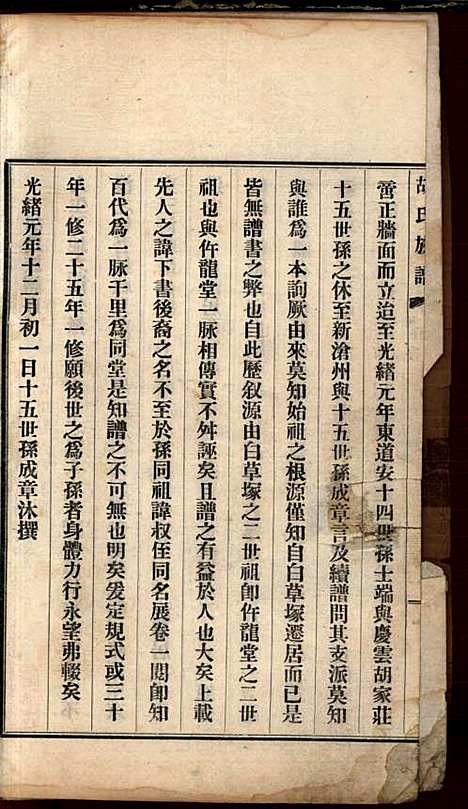 胡氏族譜
啻正牆面而立迨至光緒元年東道安十四世孫士端與慶雲胡家莊
十五世孫之休至新滄州與十五世孫成章言及續譜問其支派莫知
與誰爲一本詢厥由來莫知始祖之根源僅知自白草塚遷居而已是
皆無譜書之弊也自此歷叙源由白草塚之二世祖卽仵龍堂之二世
祖也與仵龍堂一脉相傳實不舛誣矣且譜之有益於人也大矣上載
先人之諱下書後裔之名不至於孫同祖諱叔侄同名展卷一閱卽知
百代爲一脉千里爲同堂是知譜之不可無也明矣爰定規式或三十
年一修二十五年一修願後世之爲子孫者身體力行永望弗輟矣
光緒元年十二月初一日十五世孫成章沐撰